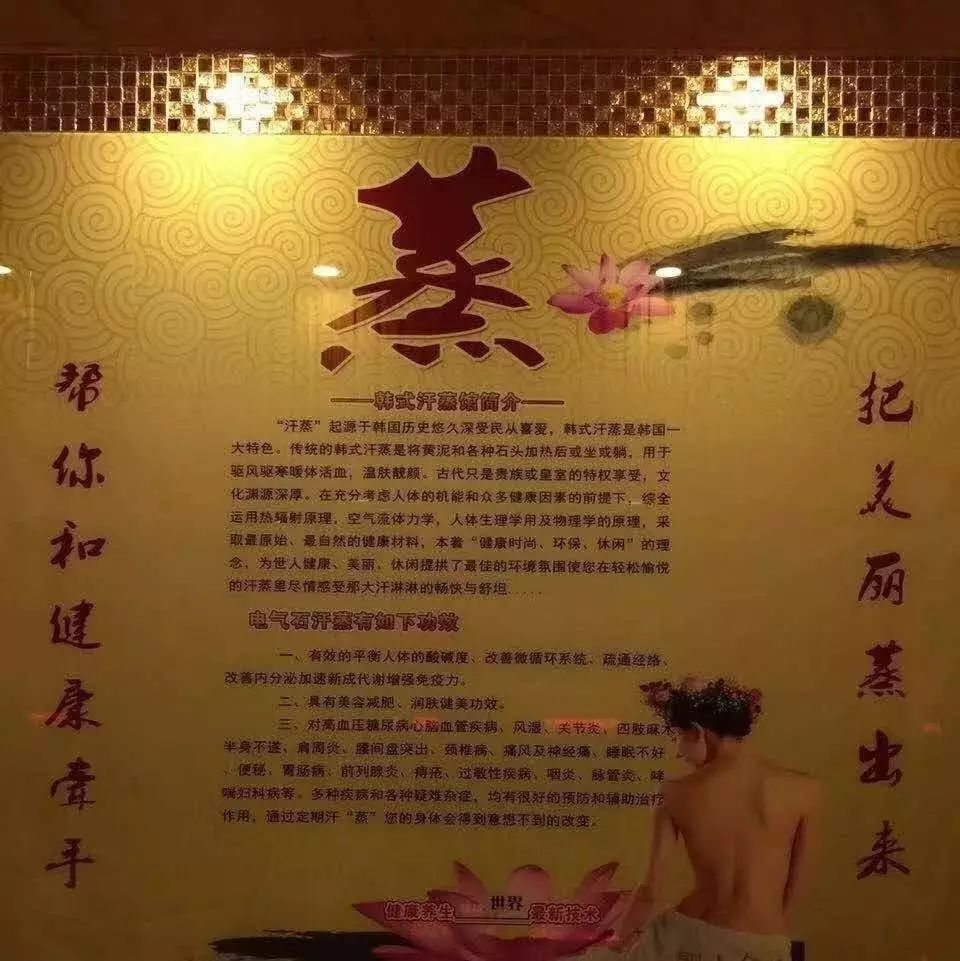 蒸
把美丽蒸出来
帮你和健康牵手
——韩式汗蒸馆简介——
“汗蒸”起源于韩国历史悠久深受民从喜爱,韩式汗蒸是韩国一
大特色。传统的韩式汗蒸是将黄泥和各种石头加热后或坐或躺,用于
驱风驱寒暖体活血,温肤靓颜。古代只是贵族或皇室的特权享受,文
化渊源深厚。在充分考虑人体的机能和众多健康因素的前提下,综全
运用热辐射原理,空气流体力学,人体生理学用及物理学的原理,采
取最原始、最自然的健康材料,本着“健康时尚、环保、休闲”的理
念,为世人健康、美丽、休闲提拱了最佳的环境氛围使您在轻松愉悦
的汗蒸里尽情感受那大汗淋淋的畅快与舒坦.....
电气石汗蒸有如下功效
一、有效的平衡人体的酸碱度、改善微循环系统、疏通经络、
改善内分泌加速新成代谢增强免疫力。
二、具有美容减肥、润肤健美功效。
三、对高血压糖尿病心脑血管疾病、风湿、关节炎,四肢麻木
半身不遂、肩周炎、腰间盘突出、颈椎病、痛风及神经痛、睡眠不好
、便秘、胃肠病、前列腺炎、痔疮、过敏性疾病、咽炎、脉管炎、哮
喘妇科病等。多种疾病和各种疑难杂症,均有很好的预防和辅助治疗
作用,通过定期汗“蒸”您的身体会得到意想不到的改变。
健康养生 世界 最新技术